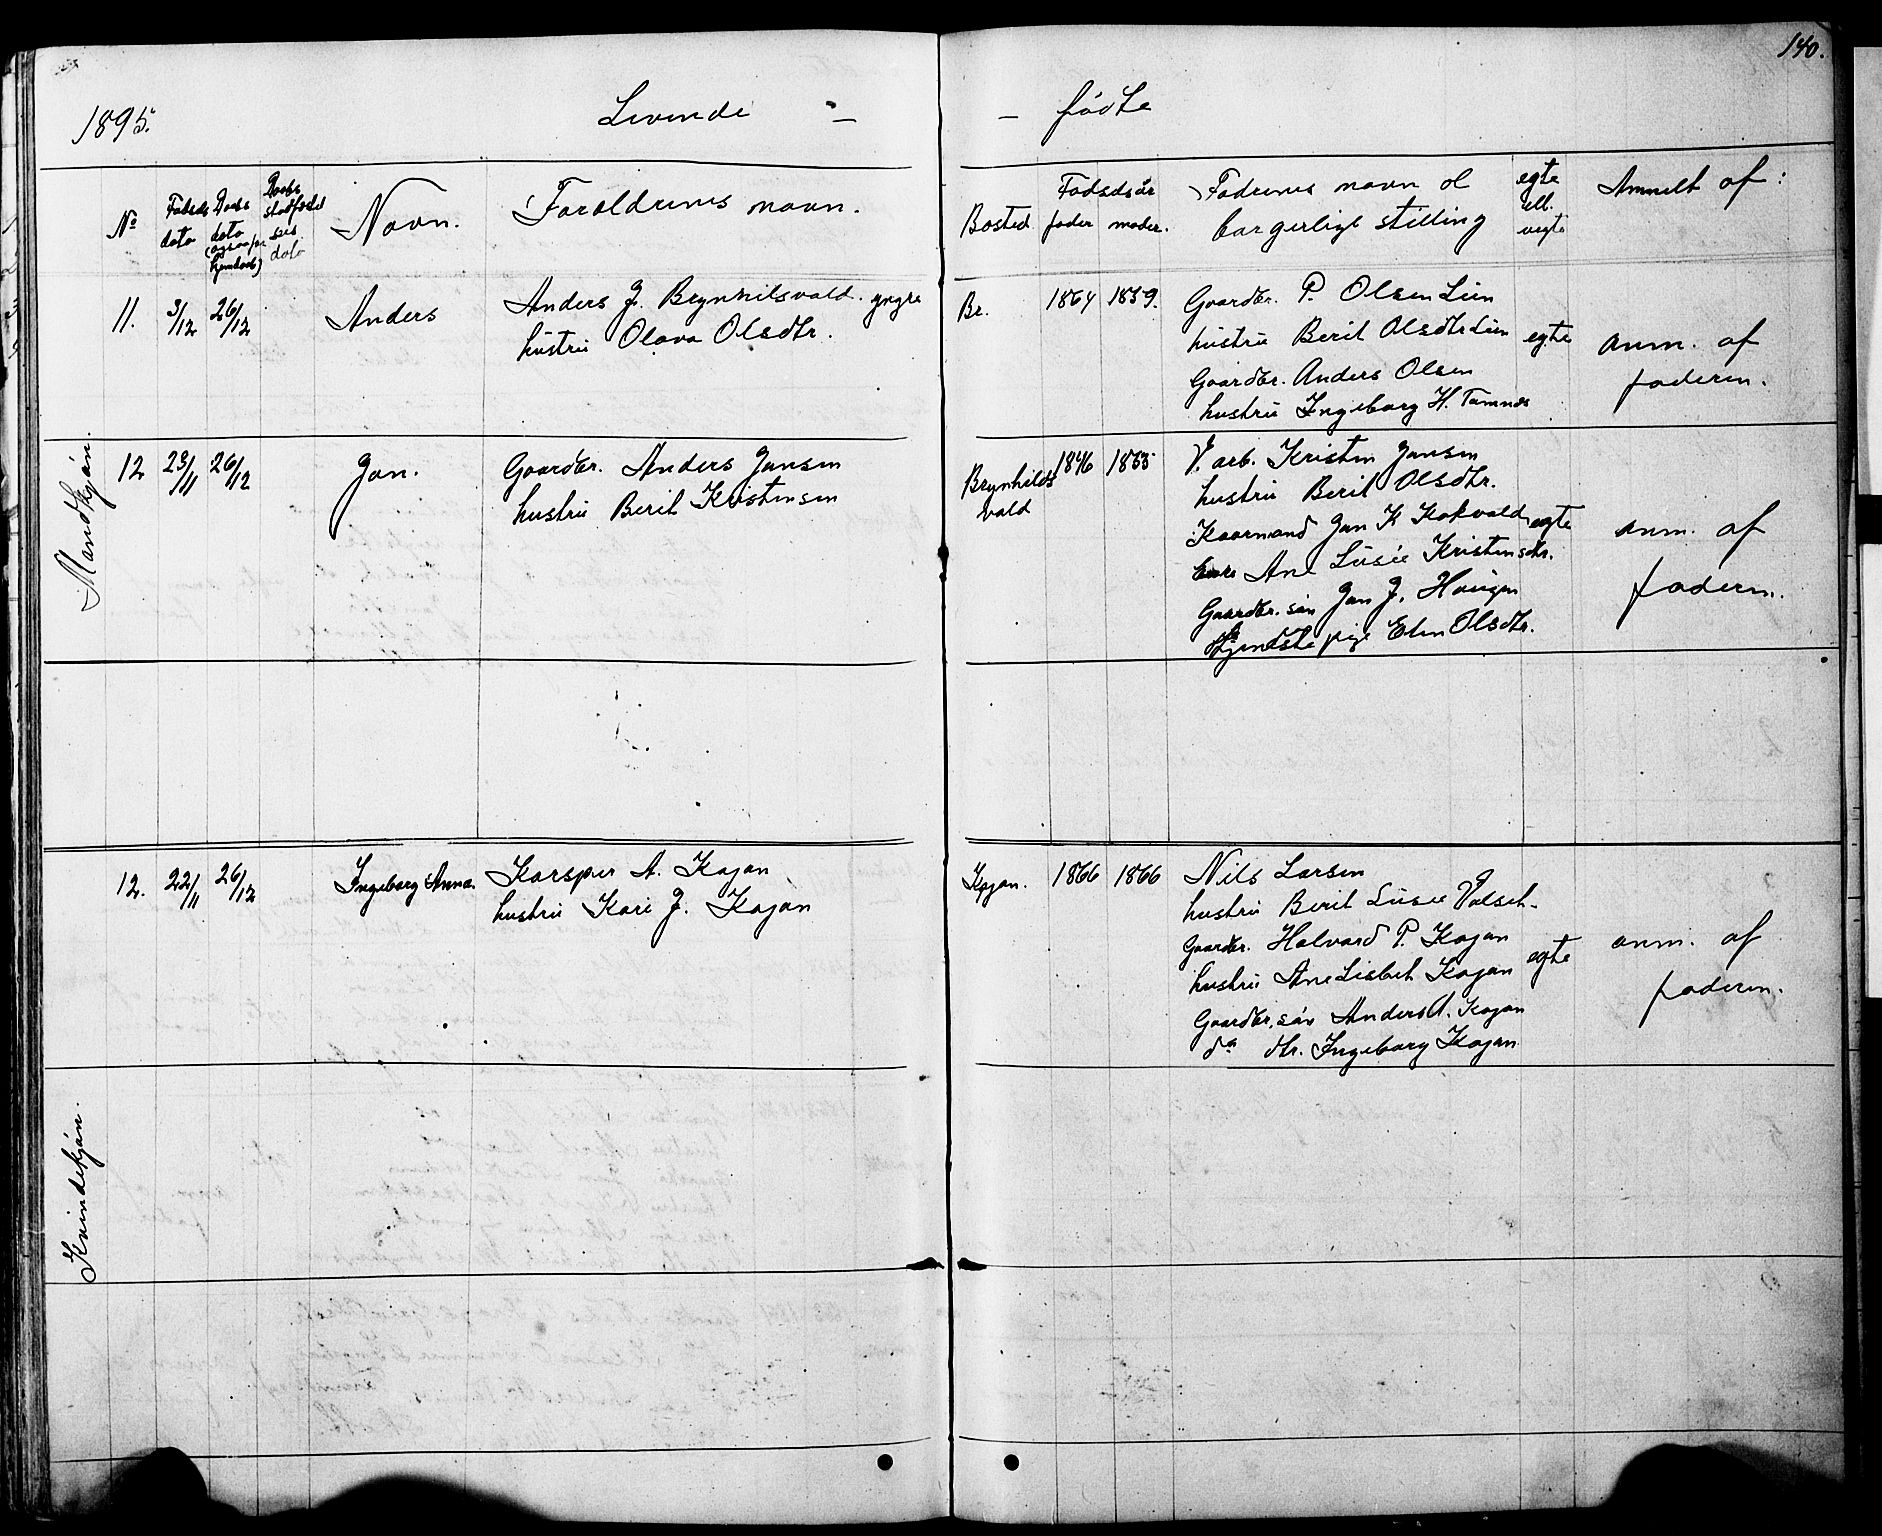 140.
1895.
Levende -
- fødte
No
Fødsels dato
Daabs dato
(ogsaa for hjemdaab)
Daabs stadfæstel ses dato
Navn.
Forældrenes navn.
Bosted
Fødselsår
fader moder.
Fadrenes navn ol
borgerlige stilling
egte
ell.
uegte
Anmeldt af:
Mandkjøn.
11. 3/12 26/12 Anders
Anders J. Brynhilsvold. yngre
hustru Olava Olsdtr.
Br. 1864 1859.
Gaardbr. P. Olsen Lien
hustru Berit Olsdtr Lien
Gaardbr. Anders Olsen
hustru Ingeborg H. Tamnes
egte
anm. af
faderen.
12 23/11 26/12 Jon.
Gaardbr. Anders Jensen
hustru Berit Kristensen
Brynhilds
vold
1846 1855
V. arb. Kristen Jensen
hustru Berit Olsdtr.
Kaarmand Jon K Kokvold
Enke Ane Lusie Kristensdtr.
Gaardbr. søn Jon J. Haugen
tjeneste pige Elen Olsdtr.
egte
anm. af
faderen.
12. 22/11 26/12 Ingeborg Anna.
Kasper A. Kojan
hustru Kari J. Kojan
Kojan. 1866 1866
Nils Larsen
hustru Berit Lusie Volset.
Gaardbr. Halvard P. Kojan
hustru Ane Lisbet Kojan
Gaardbr. søn Anders A. Kojan
do dtr. Ingeborg Kojan
egte
anm. af
faderen.
Kvindekjøn.